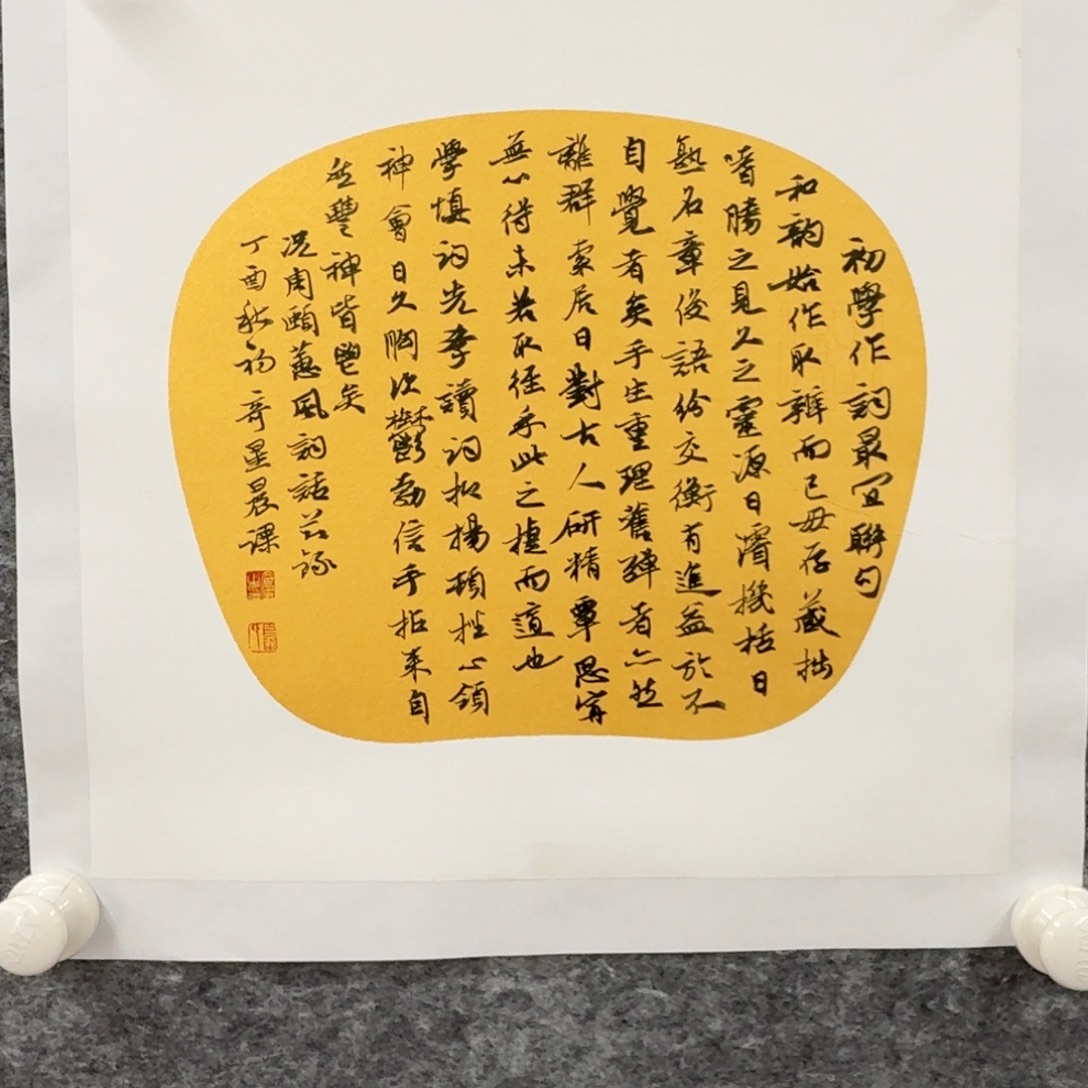 初學作詞最宜聯句
和韵始作取辦而已毋存藏拙
嗜勝之見久之靈源日濬機栝日
熟名章俊語紛交衡有進益於不
自覺者矣手生重理舊彈者亦然
離群索居日對古人研精覃思寧
無心得未若取徑乎此之捷而適也
學填詞先學讀詞抑揚頓挫心領
神會日久胸次鬱勃信手拈來自
然豐神皆鬯矣
況周頤蕙風詞話節錄
丁酉秋初 奇星晨課